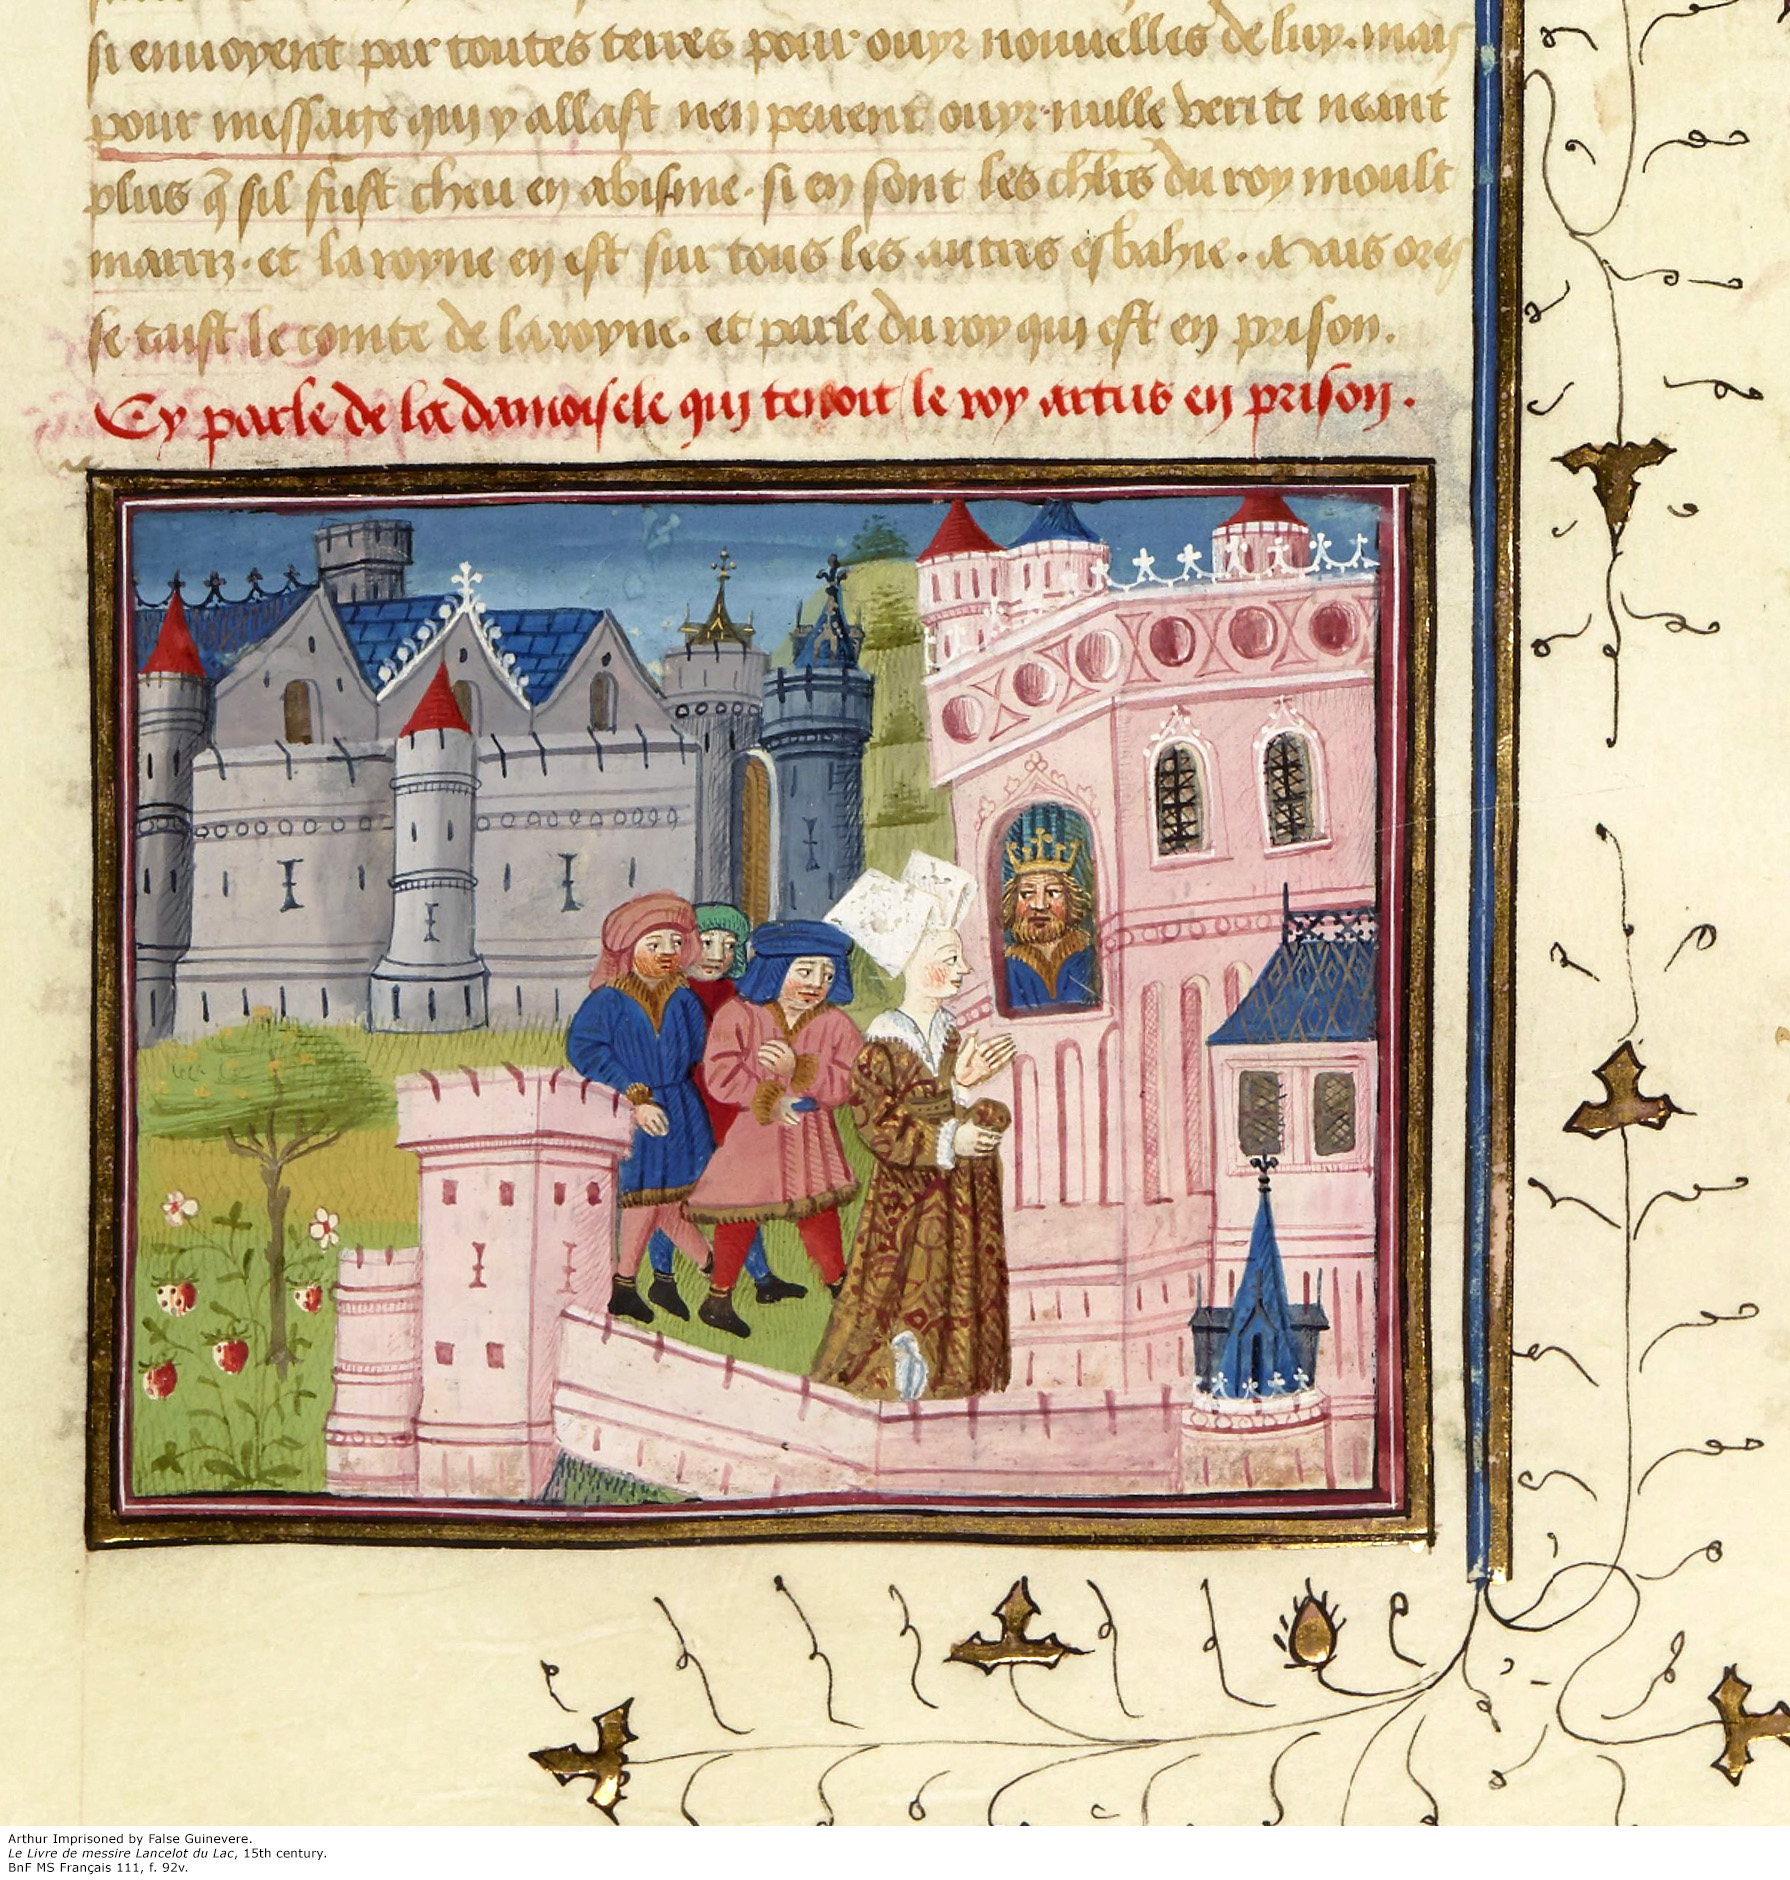 si enuoyent par toutes terres pour ouyr nouuelles de luy. mais
pour message qui y allast nen peuent ouyr nulle verite neant
plus q̃ sil fust cheu en abisme. si en sont les chl̃rs du roy moult
marriz. et la royne en est sur tous les autres esbahie. Mais ores
se taist le comte de la royne. et parle du roy qui est en prison.
Cy parle de la damoisele qui tenoit le roy artus en prison.
Arthur Imprisoned by False Guinevere.
Le Livre de messire Lancelot du Lac, 15th century.
BnF MS Français 111, f. 92v.